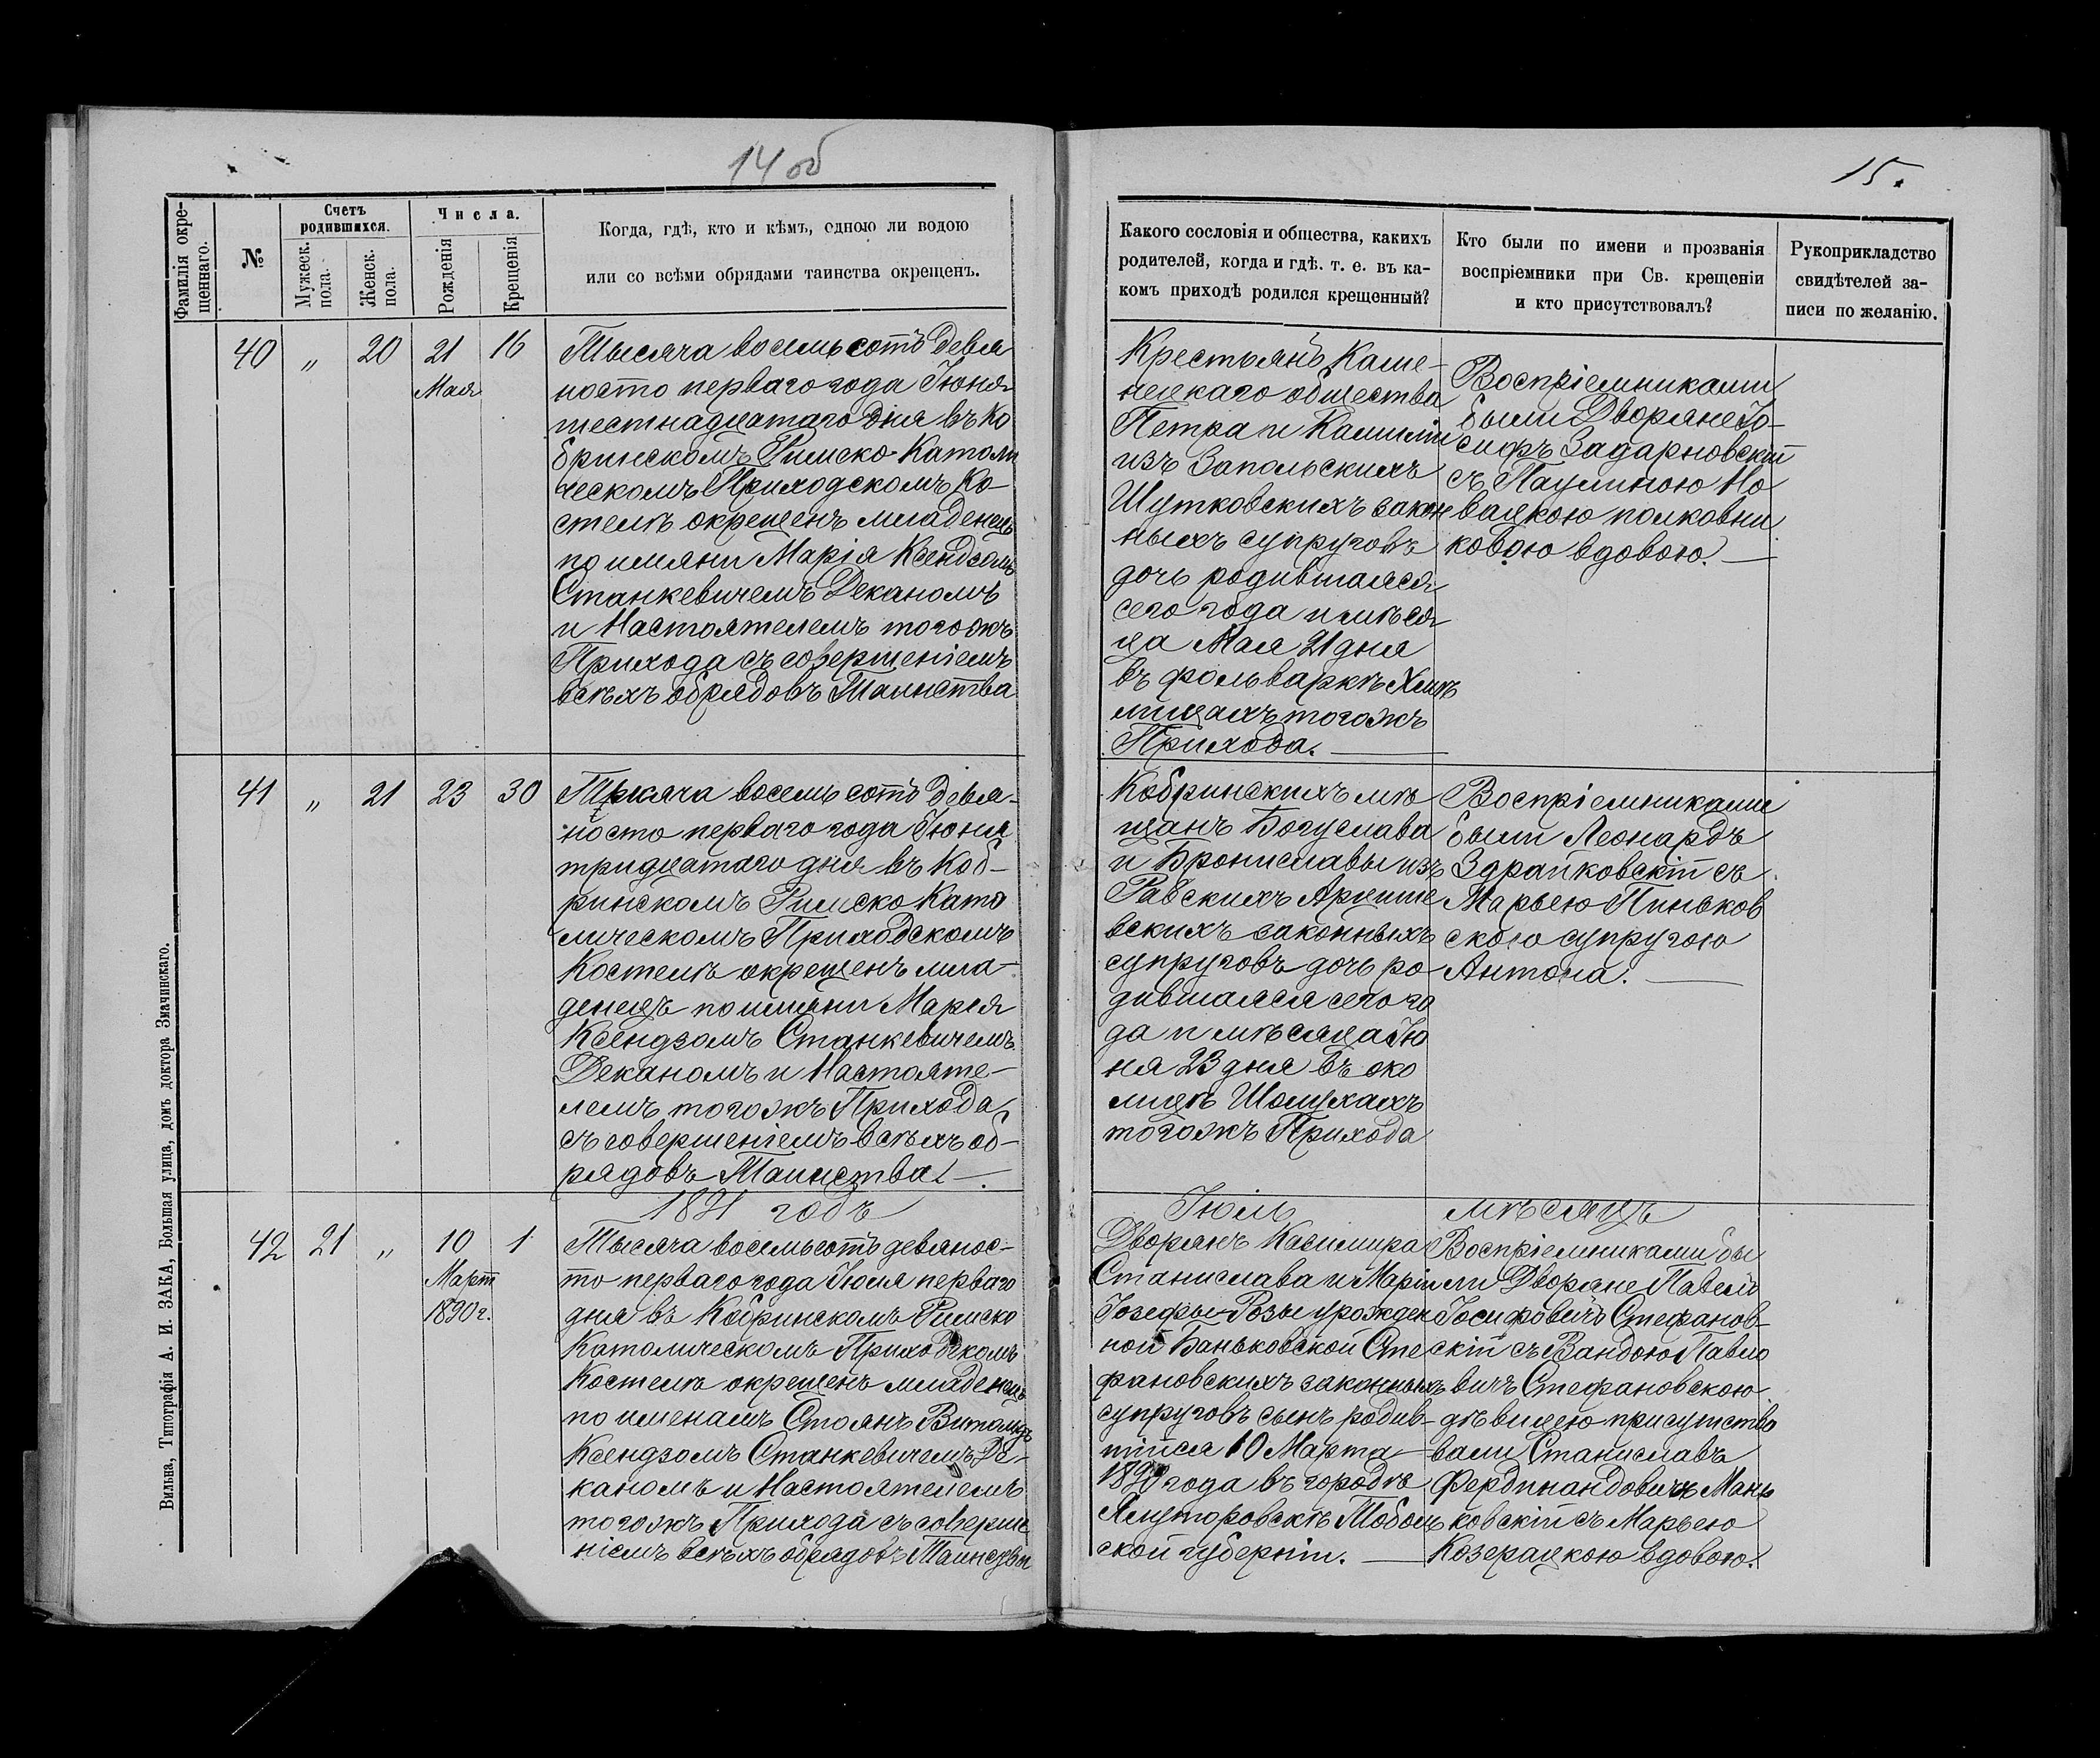 14 об
15.
Фамилія окре-
щеннаго.
№
Счетъ
родившихся.
Мужеск.
пола.
Женск.
пола.
Числа.
Рожденія
Крещенія
Когда, гдѣ, кто и кѣмъ, одною ли водою
или со всѣми обрядами таинства окрещенъ.
Какого сословія и общества, какихъ
родителей, когда и гдѣ. т. е. въ ка-
комъ приходѣ родился крещенный?
Кто были по имени и прозванія
воспріемники при Св. крещеніи
и кто присутствовалъ?
Рукоприкладство
свидѣтелей за-
писи по желанію.
40 „ 20 21 16
Мая
Тысяча восемьсотъ девя
носто перваго года Іюня
шестнадцатаго дня въ Ко
бринскомъ Римско-Католи
ческомъ Приходскомъ Ко-
стелѣ окрещенъ младенецъ
по имяни Марія Ксендзомъ
Станкевичемъ Деканомъ
и Настоятелемъ тогожъ
Прихода съ совершеніемъ
всѣхъ обрядовъ Таинства
Крестьянъ Каме-
нецкаго общества
Петра и Камиліи
изъ Запольскихъ
Шутковскихъ закон
ныхъ супруговъ
дочь родившаяся
сего года и мѣся
ца Мая 21 дня
въ фольваркѣ Хмѣ
лищахъ тогожъ
Прихода.
Воспріемниками
были Дворяне Іо-
сифъ Задарновскій
съ Паулиною Но
вацкою полковни
ковою вдовою.
41 „ 21 23 30
Тысяча восемьсотъ девя-
носто перваго года Іюня
тридцатаго дня въ Коб-
ринскомъ Римско Като
лическомъ Приходскомъ
Костелѣ окрещенъ мла-
денецъ по имяни Марія
Ксендзомъ Станкевичемъ
Деканомъ и Настояте-
лемъ тогожъ Прихода
съ совершеніемъ всѣхъ об-
рядовъ Таинства.
Кобринскихъ мѣ
щанъ Богуслава
и Брониславы изъ
Равскихъ Арцише
вскихъ законныхъ
супруговъ дочь ро
дившаяся сего го
да и мѣсяца Ію
ня 23 дня въ око
лицѣ Шомухахъ
тогожъ Прихода
Воспріемниками
были Леонардъ
Здрайковскій съ
Марьею Пиньков
скою супругою
Антона.
1891 годъ
Іюль мѣсяцъ
42 21 „ 10 1
Март
1890 г.
Тысяча восемьсотъ девянос-
то перваго года Іюля перваго
дня въ Кобринскомъ Римско
Католическомъ Приходскомъ
Костелѣ окрещенъ младенецъ
по именамъ Стоянъ Витольдъ
Ксендзомъ Станкевичемъ Де-
каномъ и Настоятелемъ
тогожъ Прихода съ соверше
ніемъ всѣхъ обрядовъ Таинства
Дворянъ Казимира
Станислава и Маріи
Іозефы-Розы урожден
ной Баньковской Сте
фановскихъ законныхъ
супруговъ сынъ родив-
шійся 10 Марта
1890 года въ городѣ
Ялуторовскѣ Тоболь
ской губерніи.
Воспріемниками бы
ли Дворяне Павелъ
Іосифовичъ Стефанов-
скій съ Вандою Павло
вичъ Стефановскою
дѣвицею присутство
вали Станиславъ
Фердинандовичъ Мань
ковскій съ Марьею
Козерацкою вдовою.
Вильна, Типографія А. И. ЗАКА, Большая улица, домъ доктора Змачинскаго.